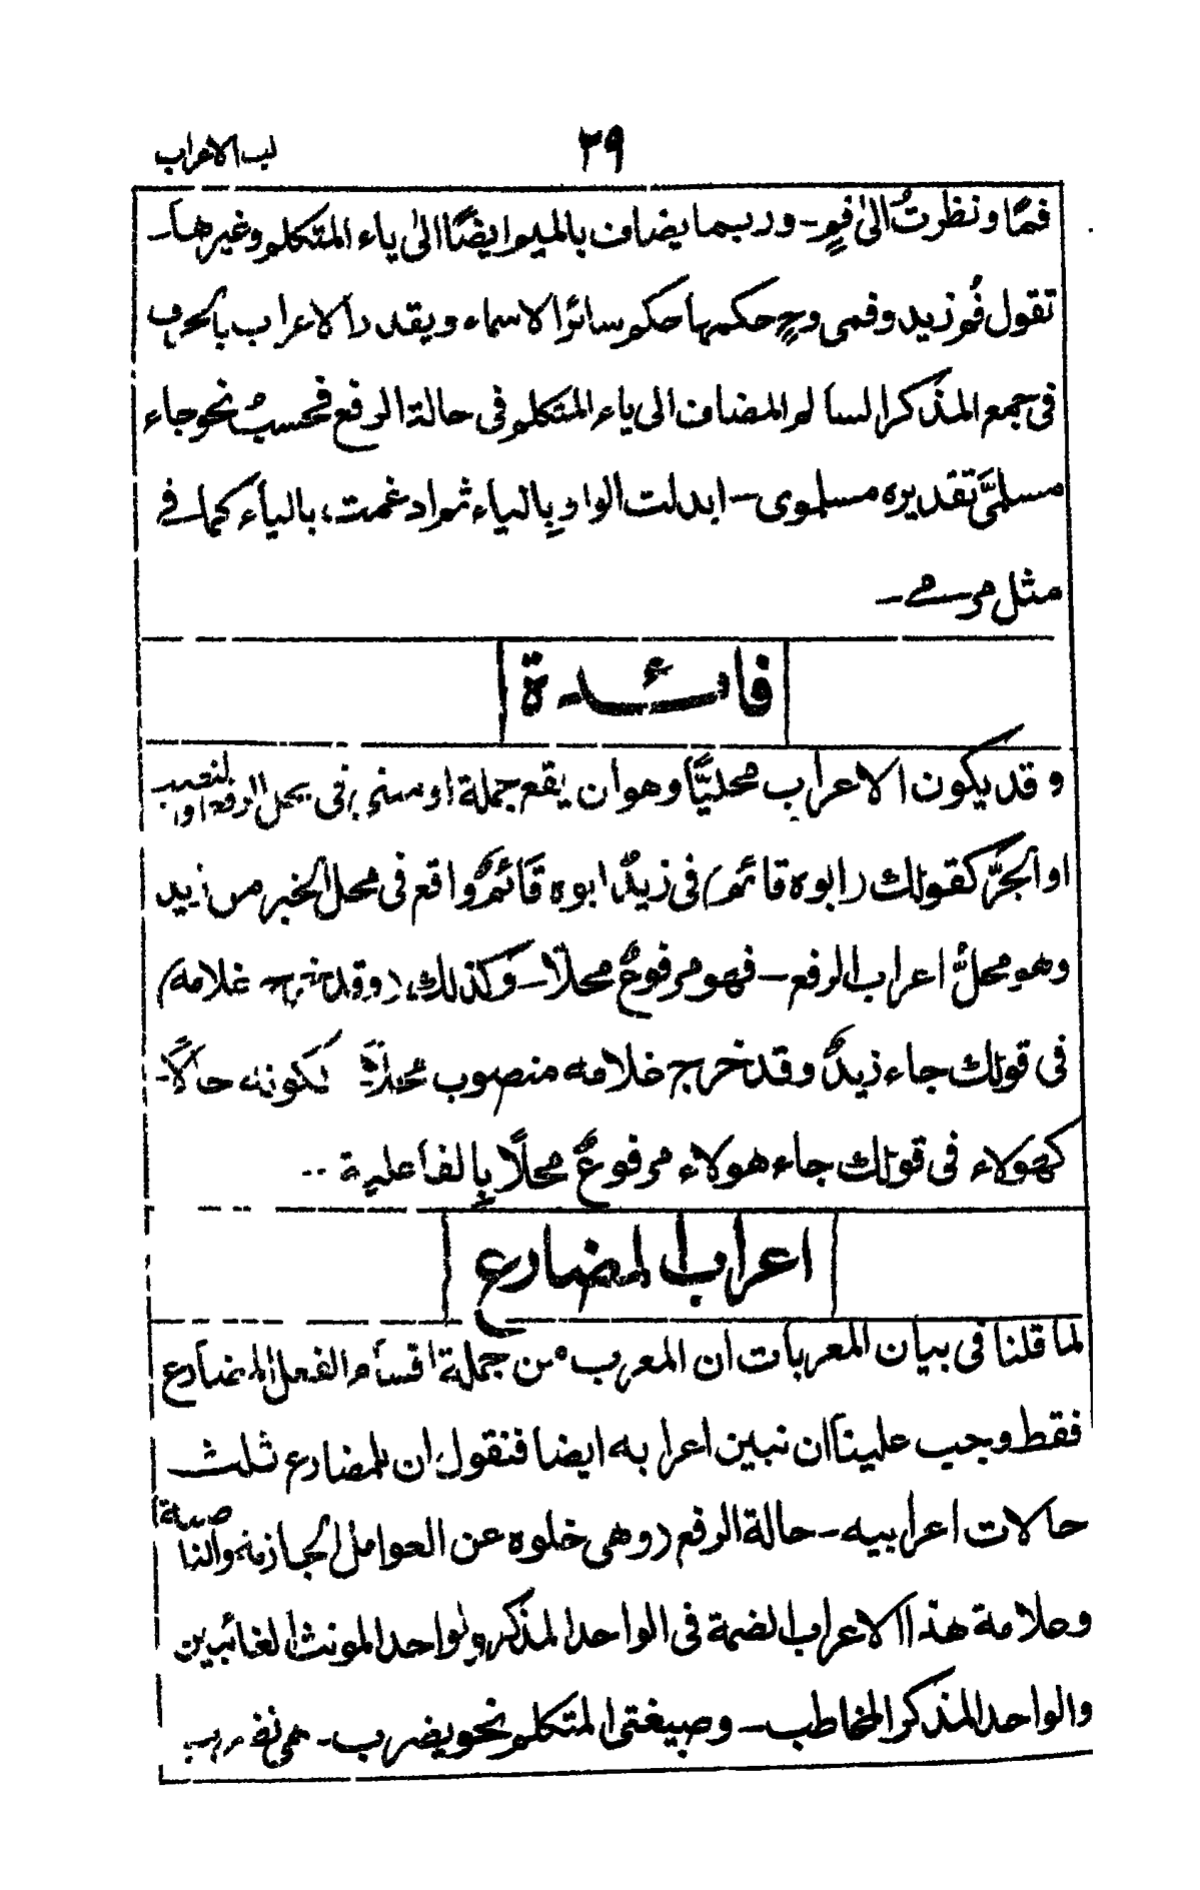 لب الاعراب
٣٩
فمًا ونظرتُ الیٰ فمٍ۔ وربما یضاف بالمیم ایضًا الیٰ یاء المتکلم وغیرھا۔
تقول فُم زید وفمی وحٍ حکمہا حکم سائر الاسماء ویقدر الاعراب بالحرف
فی جمع المذکر السالم المضاف الی یاء المتکلم فی حالۃ الرفع فحسبُ نحو جاء
مسلمیَّ تقدیرہ مسلموی۔ ابدلت الواو بالیاء ثم ادغمت بالیاء کما فی
مثل مرمی۔
فائدة
وقد یکون الاعراب محلیًّا وھو ان یقع جملة او مبنی فی محل الرفع او النصب
او الجرّ کقولك (ابوہ قائم) فی زیدٌ ابوہ قائمٌ واقع فی محل الخبر من زید
وھو محلُّ اعراب الرفع۔ فھو مرفوعٌ محلًا۔ وکذلك (وقد خرج غلامہ)
فی قولك جاء زیدٌ وقد خرج غلامہ منصوب محلاً لکونہ حالًا۔
کھولاء فی قولك جاء ھولاء مرفوعٌ محلًا بالفاعلیة ۔۔
اعراب المضارع
لما قلنا فی بیان المعربات ان المعرب من جملة اقسام الفعل المضارع
فقط وجب علینا ان نبین اعرابه ایضا فنقول ان للمضارع ثلث
حالات اعرابیه۔ حالة الرفع (وھی خلوہ عن العوامل الجازمہ والناصبة)
وعلامة ھذا الاعراب الضمة فی الواحد المذکر ولواحد المونث الغائبین
والواحد المذکر المخاطب۔ وصیغتی المتکلم نحو یضرب۔ ھی تضرب